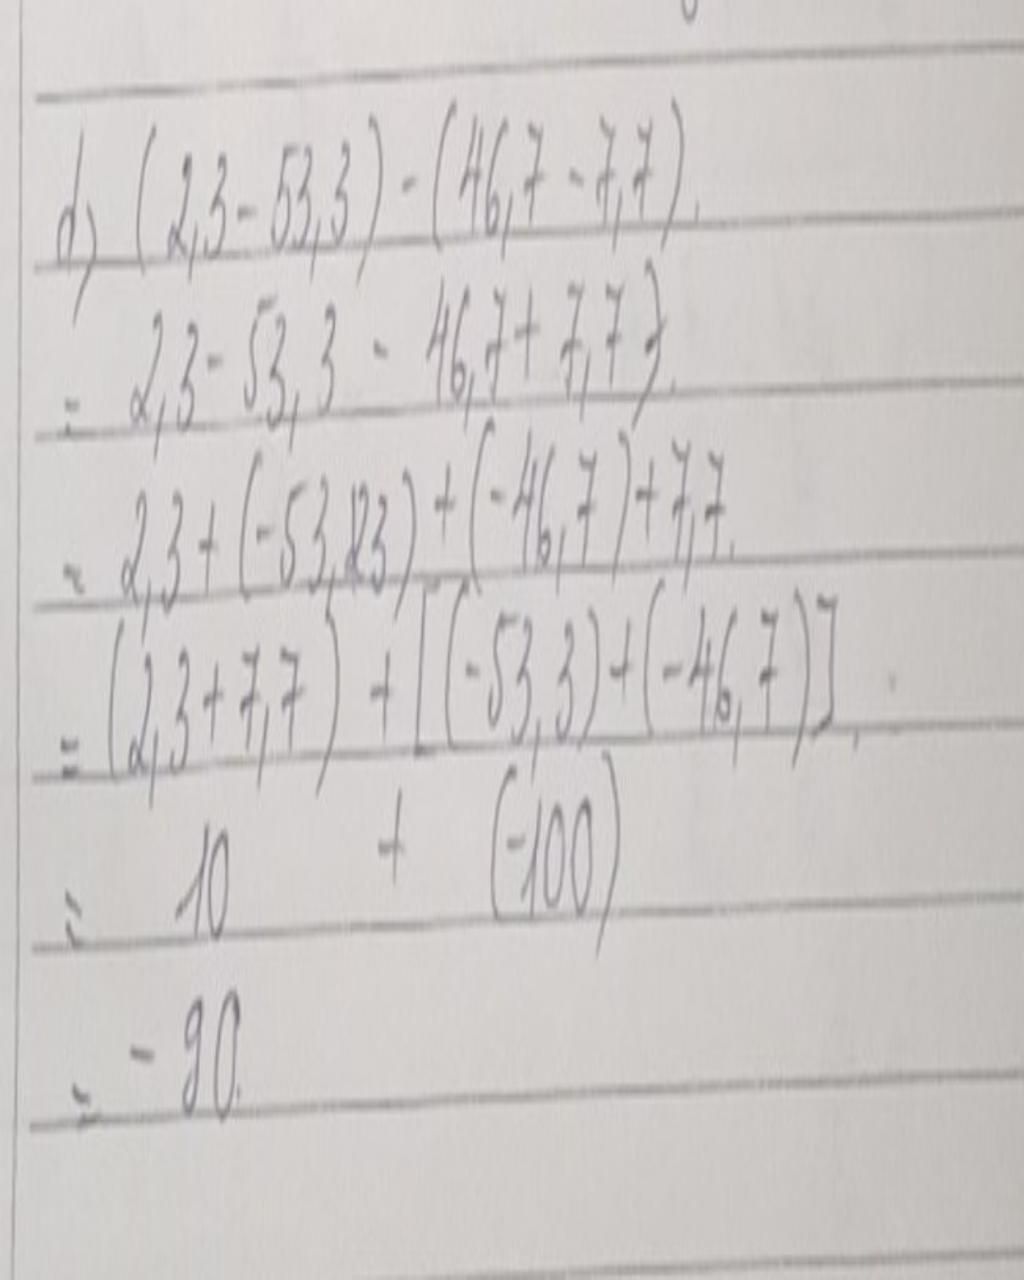 d) (2,3 - 53,3) - (46,7 - 7,7).
= 2,3 - 53,3 - 46,7 + 7,7 }.
= 2,3 + (-53,23) + (-46,7) + 7,7.
= (2,3 + 7,7) + [(-53,3) + (-46,7)].
= 10 + (-100)
= -90.